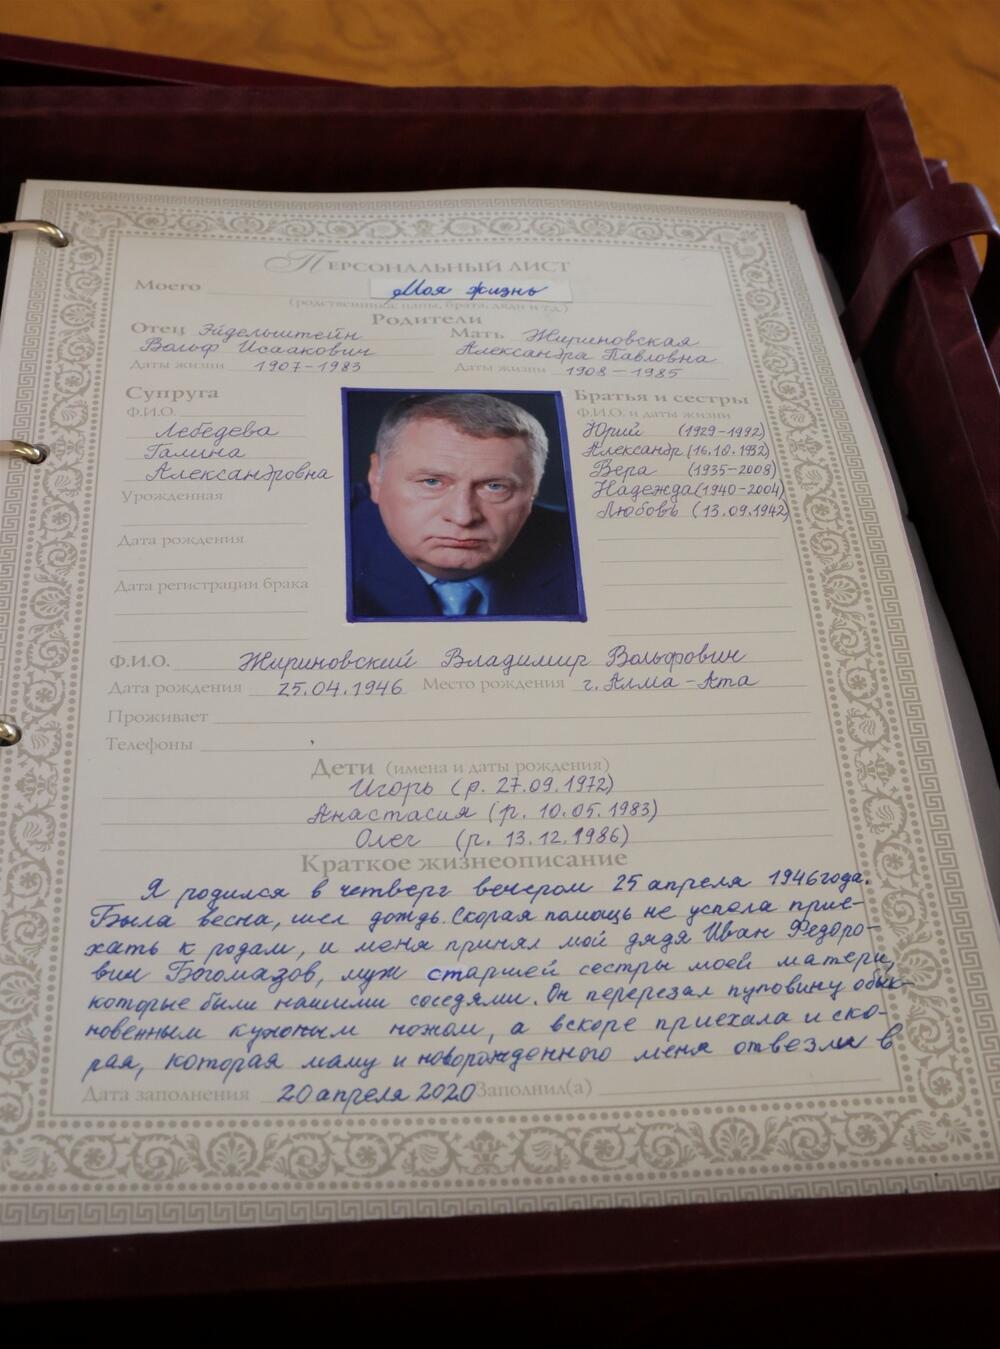 Персональный лист
Моего Моя жизнь
(родственника: папы, брата, дяди и т.д.)
Родители
Отец Эйдельштейн Мать Жириновская
Вольф Исаакович Александра Павловна
Даты жизни 1907-1983 Даты жизни 1908-1985
Супруга Братья и сестры
Ф.И.О. Ф.И.О. и даты жизни
Лебедева Юрий (1929-1992)
Галина Александр (16.10.1932)
Александровна Вера (1935-2008)
Урожденная Надежда (1940-2004)
Любовь (13.09.1942)
Дата рождения
Дата регистрации брака
Ф.И.О. Жириновский Владимир Вольфович
Дата рождения 25.04.1946 Место рождения г. Алма-Ата
Проживает
Телефоны
Дети (имена и даты рождения)
Игорь (р. 27.09.1972)
Анастасия (р. 10.05.1983)
Олег (р. 13.12.1986)
Краткое жизнеописание
Я родился в четверг вечером 25 апреля 1946 года.
Была весна, шел дождь. Скорая помощь не успела прие-
хать к родам, и меня принял мой дядя Иван Федоро-
вич Богомазов, муж старшей сестры моей матери,
которые были нашими соседями. Он перерезал пуповину обык-
новенным кухонным ножом, а вскоре приехала и ско-
рая, которая маму и новорожденного меня отвезли в
Дата заполнения 20 апреля 2020 Заполнил(а)